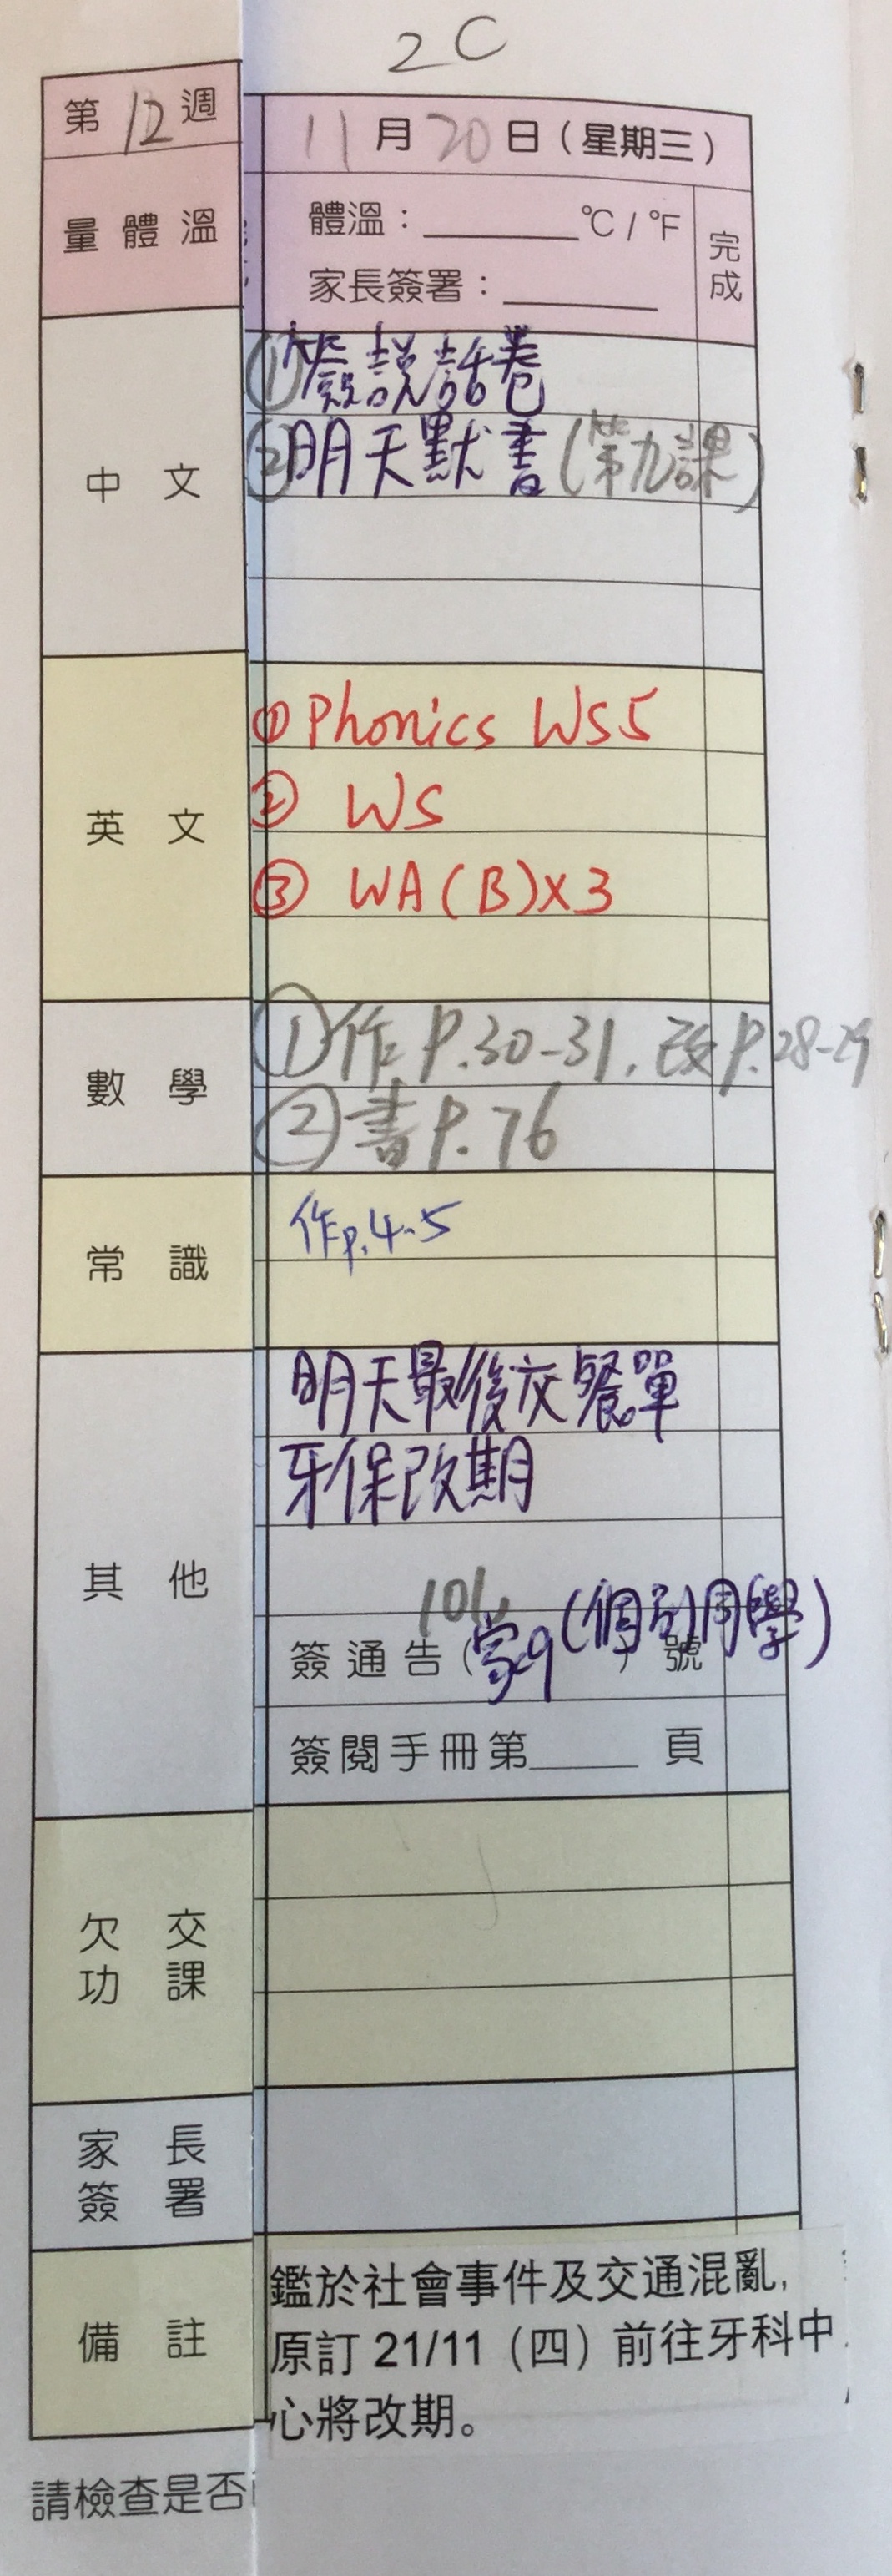 2C
第12週
11月20日(星期三)
量體溫
體溫：______℃/℉
完成
家長簽署：______
中文
①簽說話卷
②明天默書(第九課)
英文
①Phonics WS5
② WS
③ WA(B)x3
數學
①作P.30-31,改P.28-29
②書P.76
常識
作p.4-5
其他
明天最後交餐單
牙保改期
簽通告(101,家9)號(個別同學)
簽閱手冊第______頁
欠交功課
家長簽署
備註
鑑於社會事件及交通混亂,
原訂 21/11（四）前往牙科中
心將改期。
請檢查是否